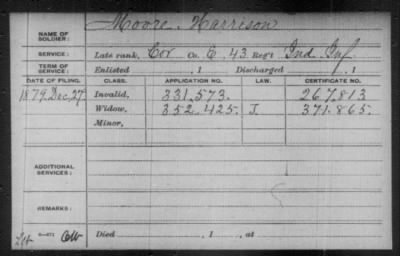 NAME OF SOLDIER: Moore, Harrison
SERVICE: Late rank, Cor Co. E 43 Reg't Ind Inf
TERM OF SERVICE: Enlisted , 1 Discharged , 1
DATE OF FILING. CLASS. APPLICATION NO. LAW. CERTIFICATE NO.
1879, Dec, 27 Invalid, 331.573. 267.813
Widow, 352.425. J. 371.865.
Minor,
ADDITIONAL SERVICES:
REMARKS:
Died , 1 , at